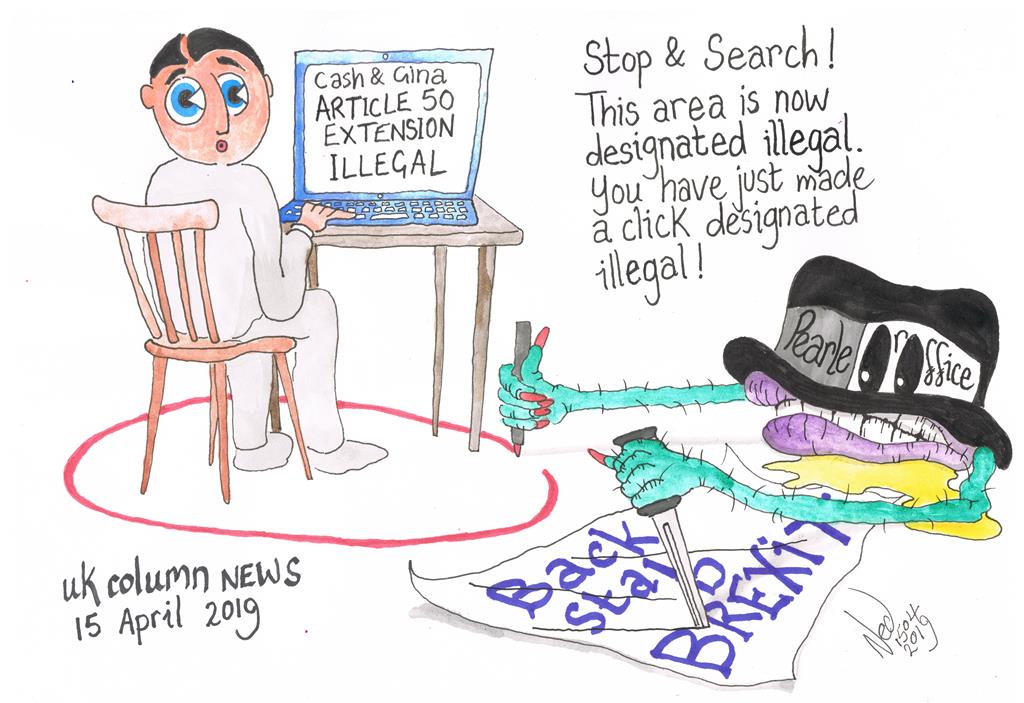 Cash & Gina
ARTICLE 50
EXTENSION
ILLEGAL
Stop & Search!
This area is now
designated illegal.
you have just made
a click designated
illegal!
Pearle
roffice
Back
Stab
BREXIT
uk column NEWS
15 April 2019
Ned
1504
2019